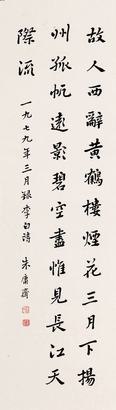 故人西辭黃鶴樓煙花三月下揚
州孤帆遠影碧空盡惟見長江天
際流
一九七九年三月錄李白詩 朱庸齋